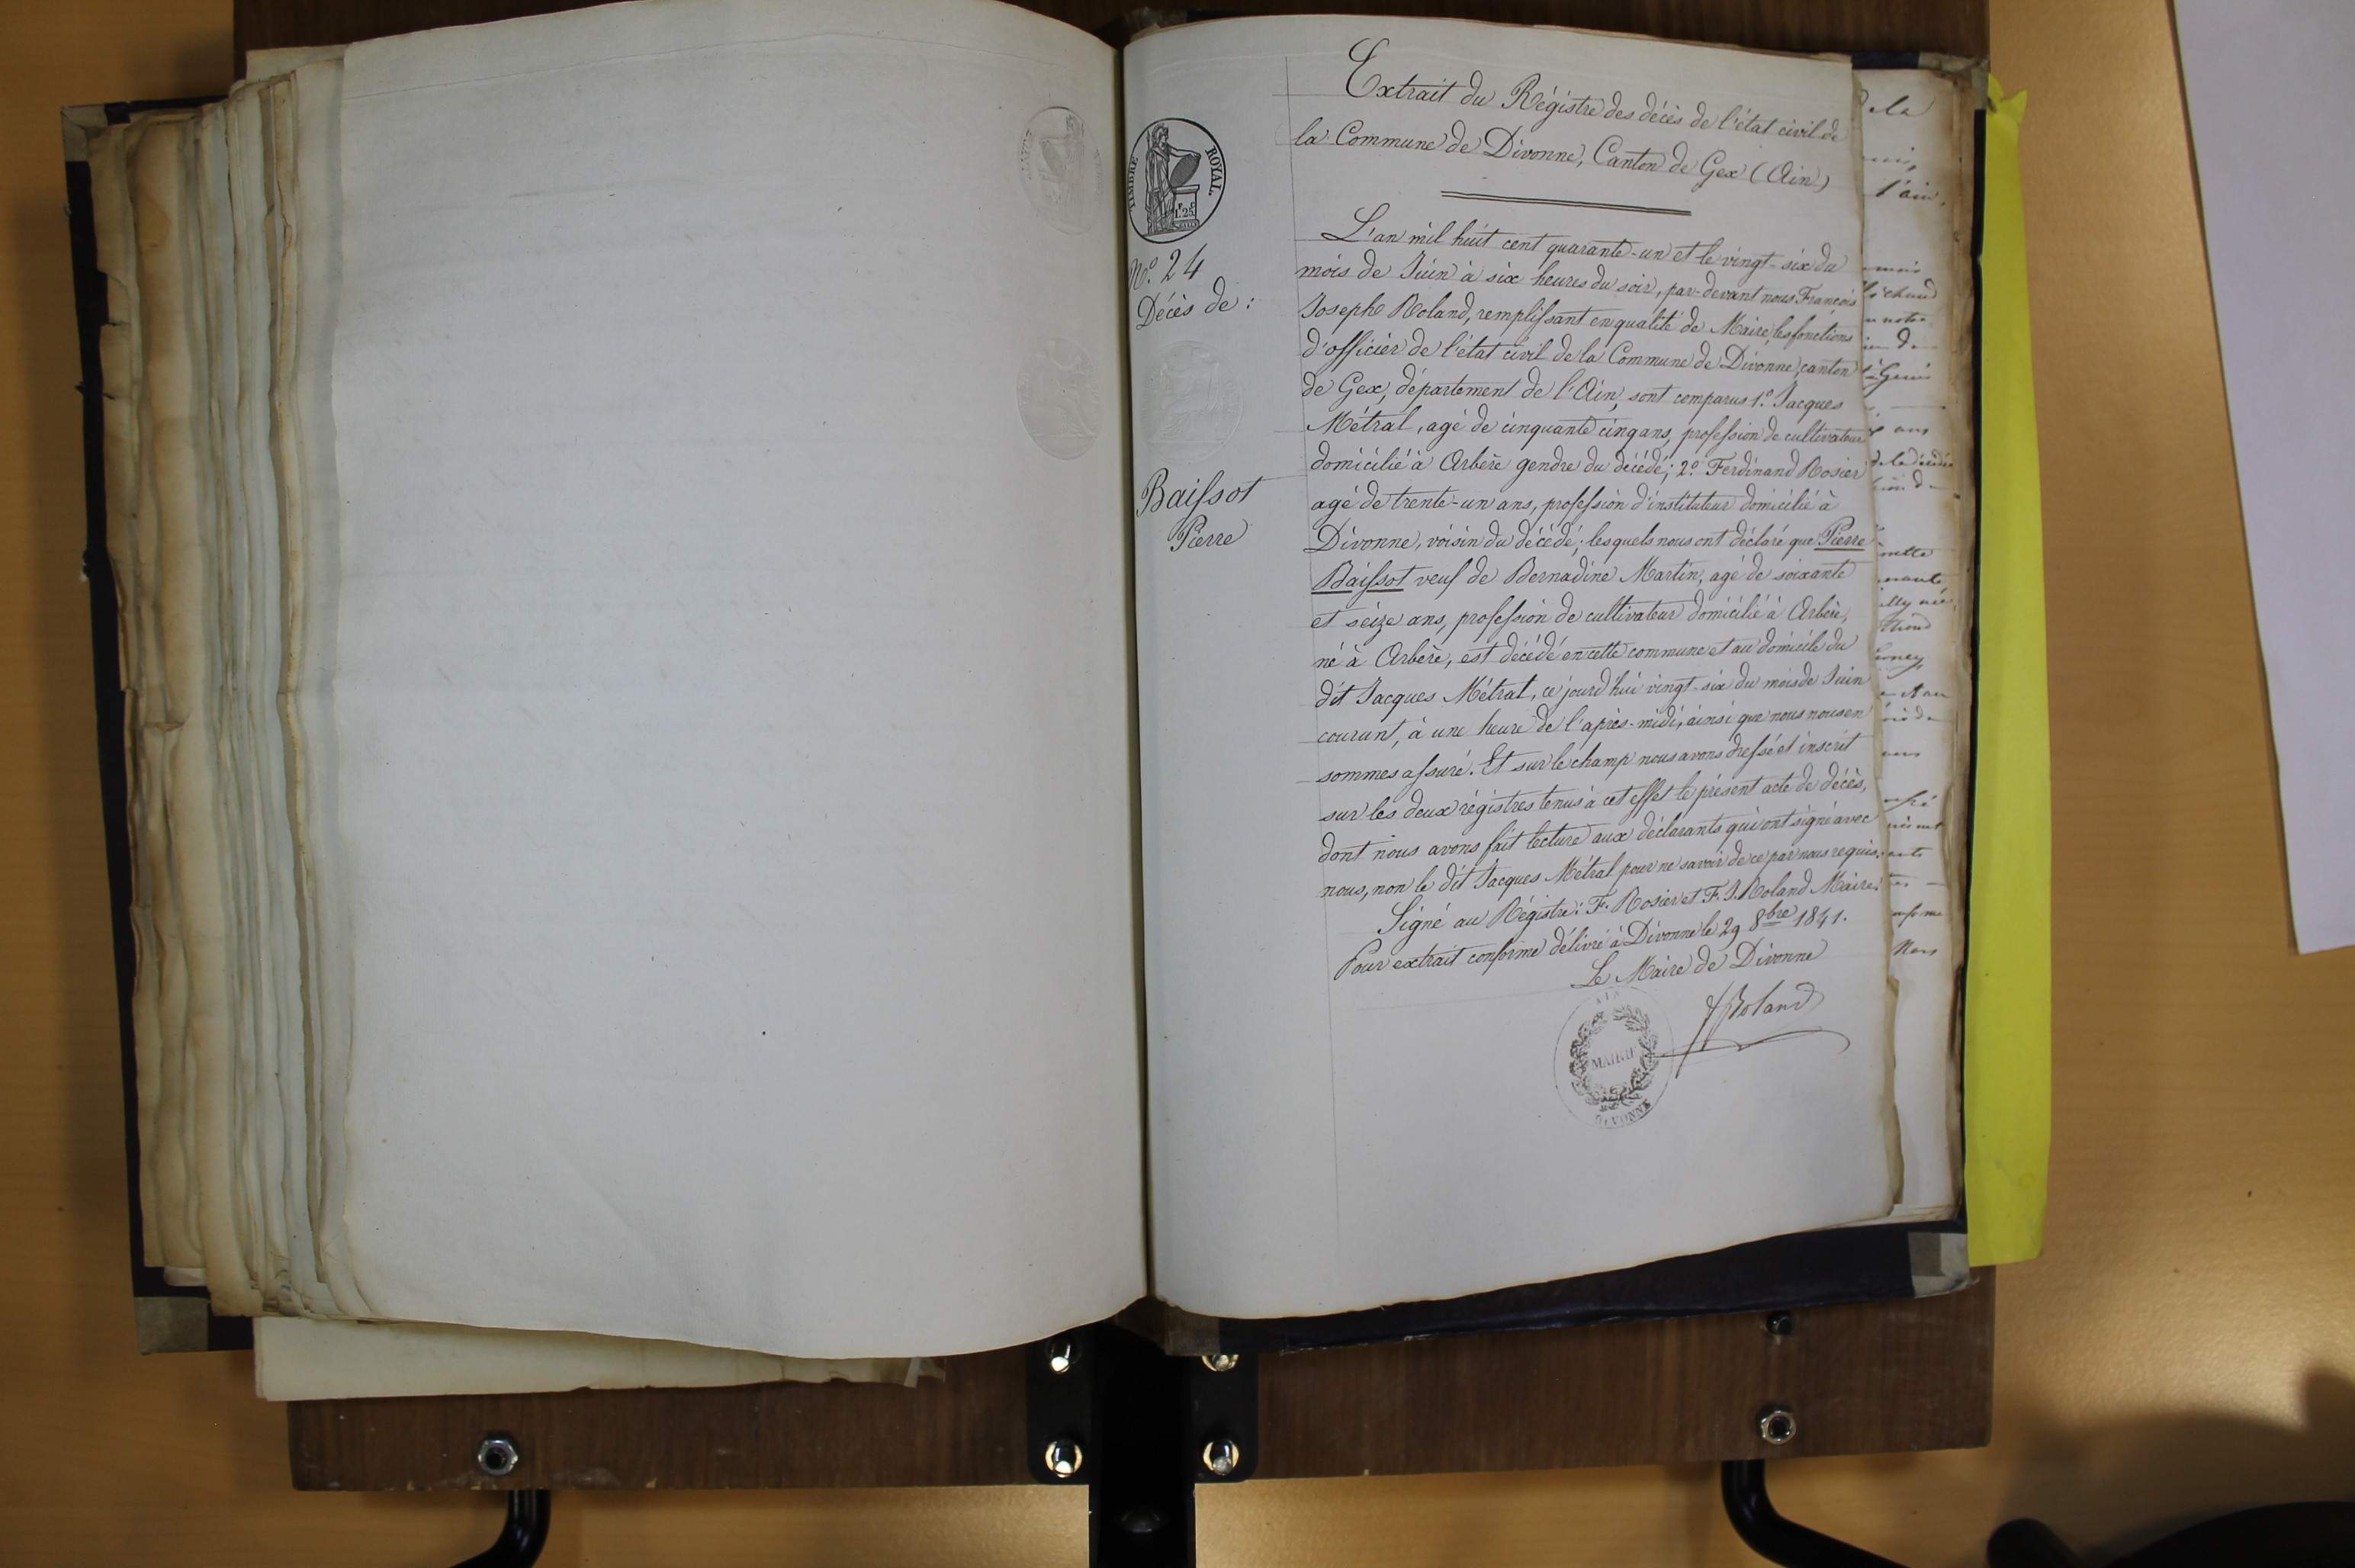 TIMBRE ROYAL.
1.F 25.C
N.° 24
Décès de :
Baissot
Pierre
Extrait du Régistre des décès de l'état civil de
la Commune de Divonne, Canton de Gex (Ain)
L'an mil huit cent quarante-un et le vingt-six du
mois de Juin à six heures du soir, par-devant nous François
Joseph Roland, remplissant en qualité de Maire, les fonctions
d'officier de l'état civil de la Commune de Divonne, canton
de Gex, département de l'Ain, sont comparus 1.° Jacques
Métral, agé de cinquante cinq ans, profession de cultivateur
domicilié à Arbère gendre du décédé; 2.° Ferdinand Rosier
agé de trente-un ans, profession d'instituteur domicilié à
Divonne, voisin du décédé; lesquels nous ont déclaré que Pierre
Baissot veuf de Bernadine Martin, agé de soixante
et seize ans, profession de cultivateur domicilié à Arbère,
né à Arbère, est décédé en cette commune et au domicile du
dit Jacques Métral, ce jourd'hui vingt-six du mois de Juin
courant, à une heure de l'après-midi, ainsi que nous nous en
sommes assuré. Et sur le champ nous avons dressé et inscrit
sur les deux régistres tenus à cet effet le présent acte de décès,
dont nous avons fait lecture aux déclarants qui ont signé avec
nous, non le dit Jacques Métral pour ne savoir de ce par nous requis.
Signé au Régistre: F. Rosier et F. J. Roland Maire.
Pour extrait conforme délivré à Divonne le 29 8bre 1841.
Le Maire de Divonne
Roland
MAIRIE
DIVONNE
de la
l'ain.
mois
ans
de la décédée
Mous